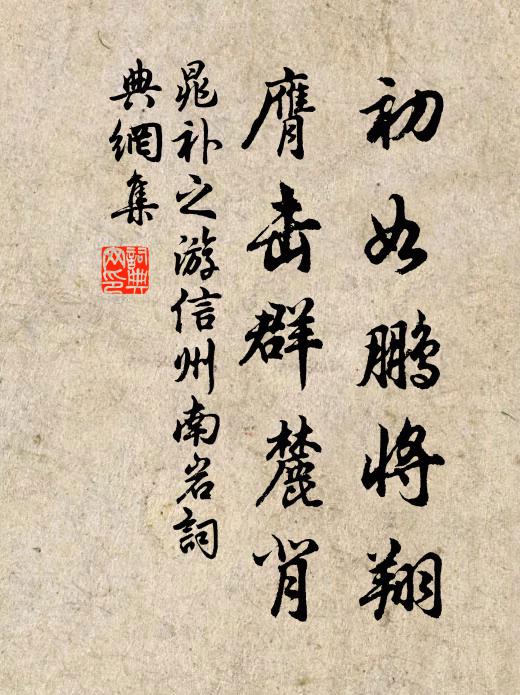 初如鹏将翔
膺击群麓背
晁补之游信州南岩詞
典網集
詞典
网印